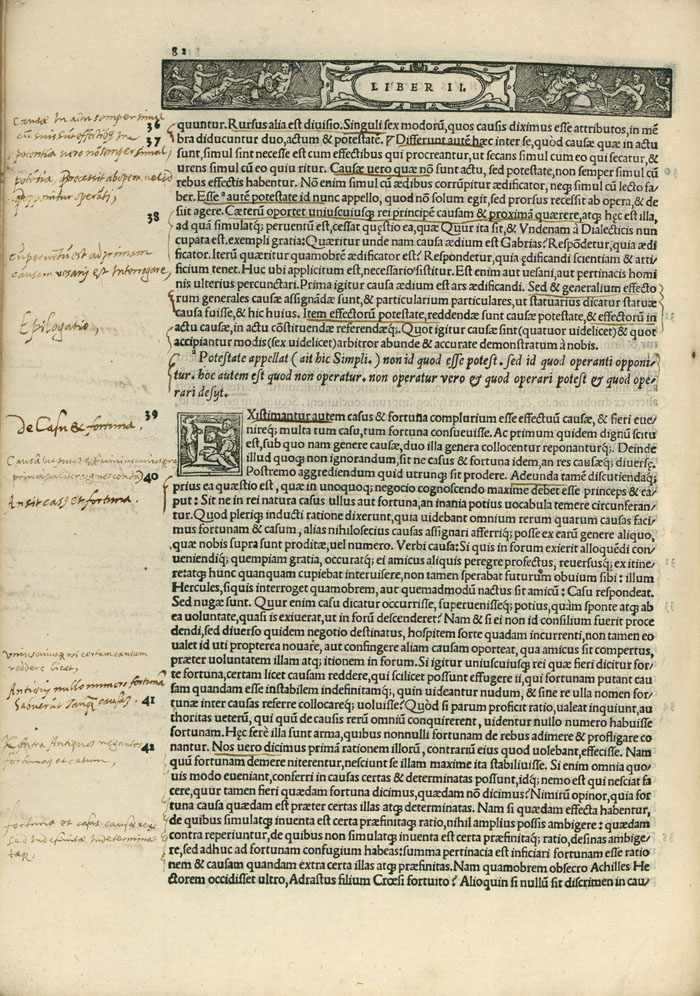 82
LIBER II.
quuntur. Rursus alia est diuisio. Singuli sex modorũ, quos causis diximus esse attributos, in mẽ
36
bra diducuntur duo, actum & potestatẽ. Differunt autẽ hæc inter se, quòd causæ quæ in actu
37
sunt, simul sint necesse est cum effectibus qui procreantur, ut secans simul cum eo qui secatur, &
urens simul cũ eo quiu ritur. Causæ vero quæ nõ sunt actu, sed potestate, non semper simul cũ
rebus effectis habentur. Nõ enim simul cũ ædibus corrũpitur ædificator, neqʒ simul cũ lecto fa/
ber. Esse autẽ potestate id nunc appello, quod nõ solum egit, sed prorsus necessit ab opera, & de
siit agere. Cæterũ oportet uniuscuiusqʒ rei principẽ causam & proximã quærere, atqʒ hęc est illa,
38
ad quã simulatqʒ peruentũ est, cessat quęstio ea, quæ Quur ita sit, & Vndenam à Dialecticis nun
cupata est, exempli gratia: Quæritur unde nam causa ædium est Gabrias? Respõdetur, quia ædi
ficator. Iterũ quæritur quamobrẽ ædificator est? Respondetur, quia ędificandi scientiam & arti/
ficium tenet. Huc ubi applicitum est, necessario sistitur. Est enim aut uesani, aut pertinacis homi
nis ulterius percunctari. Prima igitur causa ædium est ars ædificandi. Sed & generalium effecto
rum generales causæ assignãdæ sunt, & particularium particulares, ut statuarius dicatur statuæ
causa fuisse, & hic huius. Item effectorũ potestate, reddendæ sunt causæ potestate, & effectorũ in
actu causæ, in actu cõstituendæ referendæqʒ. Quot igitur causæ sint (quatuor uidelicet) & quot
accipiantur modis (sex uidelicet) arbitror abunde & accurate demonstratum à nobis.
Potestate appellat (ait hic Simpli.) non id quod esse potest. sed id quod operanti opponi/
tur. hoc autem est quod non operatur. non operatur vero & quod operari potest & quod ope/
rari desyt.
39
De Casu & fortuna.
EXistimantur autem casus & fortuna complurium esse effectuũ causæ, & fieri eue/
nireqʒ multa tum casu, tum fortuna consueuisse. Ac primum quidem dignũ scitu
est, sub quo nam genere causæ, duo illa genera collocentur reponanturqʒ. Deinde
illud quoqʒ non ignorandum, sit ne casus & fortuna idem, an res causæqʒ diuersę.
Postremo aggrediendum quid utrunqʒ sit prodere. Adeunda tamẽ discutiendaqʒ
40
prius ea quæstio est, quæ in unoquoqʒ negocio cognoscendo maxime debet esse princeps & ca/
put: Sit ne in rei natura casus ullus aut fortuna, an inania potius uocabula temere circunferan/
tur. Quod pleriqʒ inducti ratione dixerunt, quia uidebant omnium rerum quarum causas faci/
mus fortunam & casum, alias nihilosecius causas assignari afferriqʒ posse ex earũ genere aliquo,
quæ nobis supra sunt proditæ, uel numero. Verbi causa: Si quis in forum exierit alloquẽdi con/
ueniendiqʒ quempiam gratia, occuratqʒ ei amicus aliquis peregre profectus, reuersusqʒ ex itine/
re: atqʒ hunc quanquam cupiebat interuisere, non tamen sperabat futurum obuium sibi: illum
Hercules, siquis interroget quamobrem, aut quemadmodũ nactus sit amicũ: Casu respondeat.
Sed nugæ sunt. Quur enim casu dicatur occurrisse, superuenisseqʒ potius, quàm sponte atqʒ ab
ea uoluntate, quasi is exiuerat, ut in forũ descenderet? Nam & si ei non id consilium fuerit proce
dendi, sed diuerso quidem negotio destinatus, hospitem forte quadam incurrenti, non tamen eo
ualet id uti propterea nouare, aut confingere aliam causam oporteat, qua amicus sit compertus,
præter uoluntatem illam atqʒ itionem in forum. Si igitur uniuscuiusqʒ rei quæ fieri dicitur for/
te fortuna, certam licet causam reddere, qui scilicet possunt effugere ii, qui fortunam putant cau
sam quandam esse instabilem indefinitamqʒ, quin uideantur nudum, & sine re ulla nomen for/
tunæ inter causas referre collocareqʒ uoluisse? Quòd si parum proficit ratio, ualeat inquiunt, au
41
thoritas ueterũ, qui quũ de causis rerũ omniũ conquirerent, uidentur nullo numero habuisse
fortunam. Hęc ferè illa sunt arma, quibus nonnulli fortunam de rebus adimere & profligare co
nantur. Nos uero dicimus primã rationem illorũ, contrariũ eius quod uolebant, effecisse. Nam
42
quũ fortunam demere niterentur, nesciunt se illam maxime ita stabiliuisse. Si enim omnia quo/
uis modo eueniant, conferri in causas certas & determinatas possunt, idqʒ nemo est qui nesciat fa
cere, quur tamen fieri quædam fortuna dicimus, quædam nõ dicimus? Nimirũ opinor, quia for
tuna causa quædam est præter certas illas atqʒ determinatas. Nam si quædam effecta habentur,
de quibus simulatqʒ inuenta est certa præfinitaqʒ ratio, nihil amplius possis ambigere: quædam
contra reperiuntur, de quibus non simulatqʒ inuenta est certa præfinitaqʒ ratio, desinas ambige/
re, sed adhuc ad fortunam confugium habeas: summa pertinacia est inficiari fortunam esse ratio
nem & causam quandam extra certa illas atqʒ præfinitas. Nam quamobrem obsecro Achilles He
ctorem occidisset ultro, Adrastus filium Crœsi fortuito? Alioquin si nullũ sit discrimen in cau/
Epilogatio,
An sit casus et fortuna.